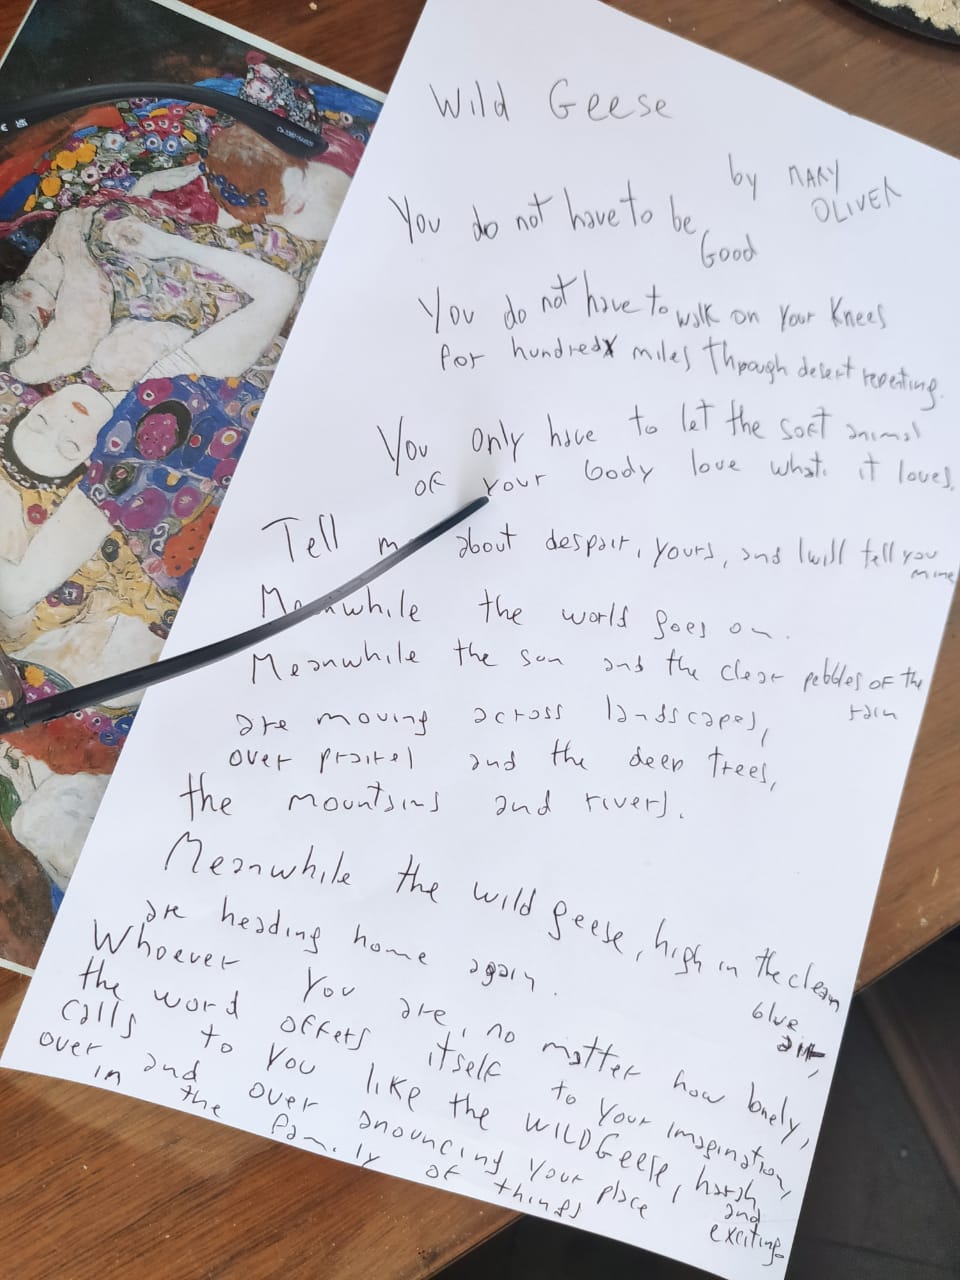 Wild Geese
by MARY
OLIVER
You do not have to be
Good
You do not have to walk on your knees
for hundred miles through desert repenting.
You only have to let the soft animal
of your body love what it loves.
Tell me about despair, yours, and I will tell you
mine
Meanwhile the world goes on.
Meanwhile the sun and the clear pebbles of the
rain
are moving across landscapes,
over praires and the deep trees,
the mountains and rivers.
Meanwhile the wild geese, high in the clean
blue air,
are heading home again.
Whoever you are, no matter how lonely,
the word offers itself to your imagination,
calls to you like the WILD Geese, harsh
and
exciting.
over and over anouncing your place
in the family of things